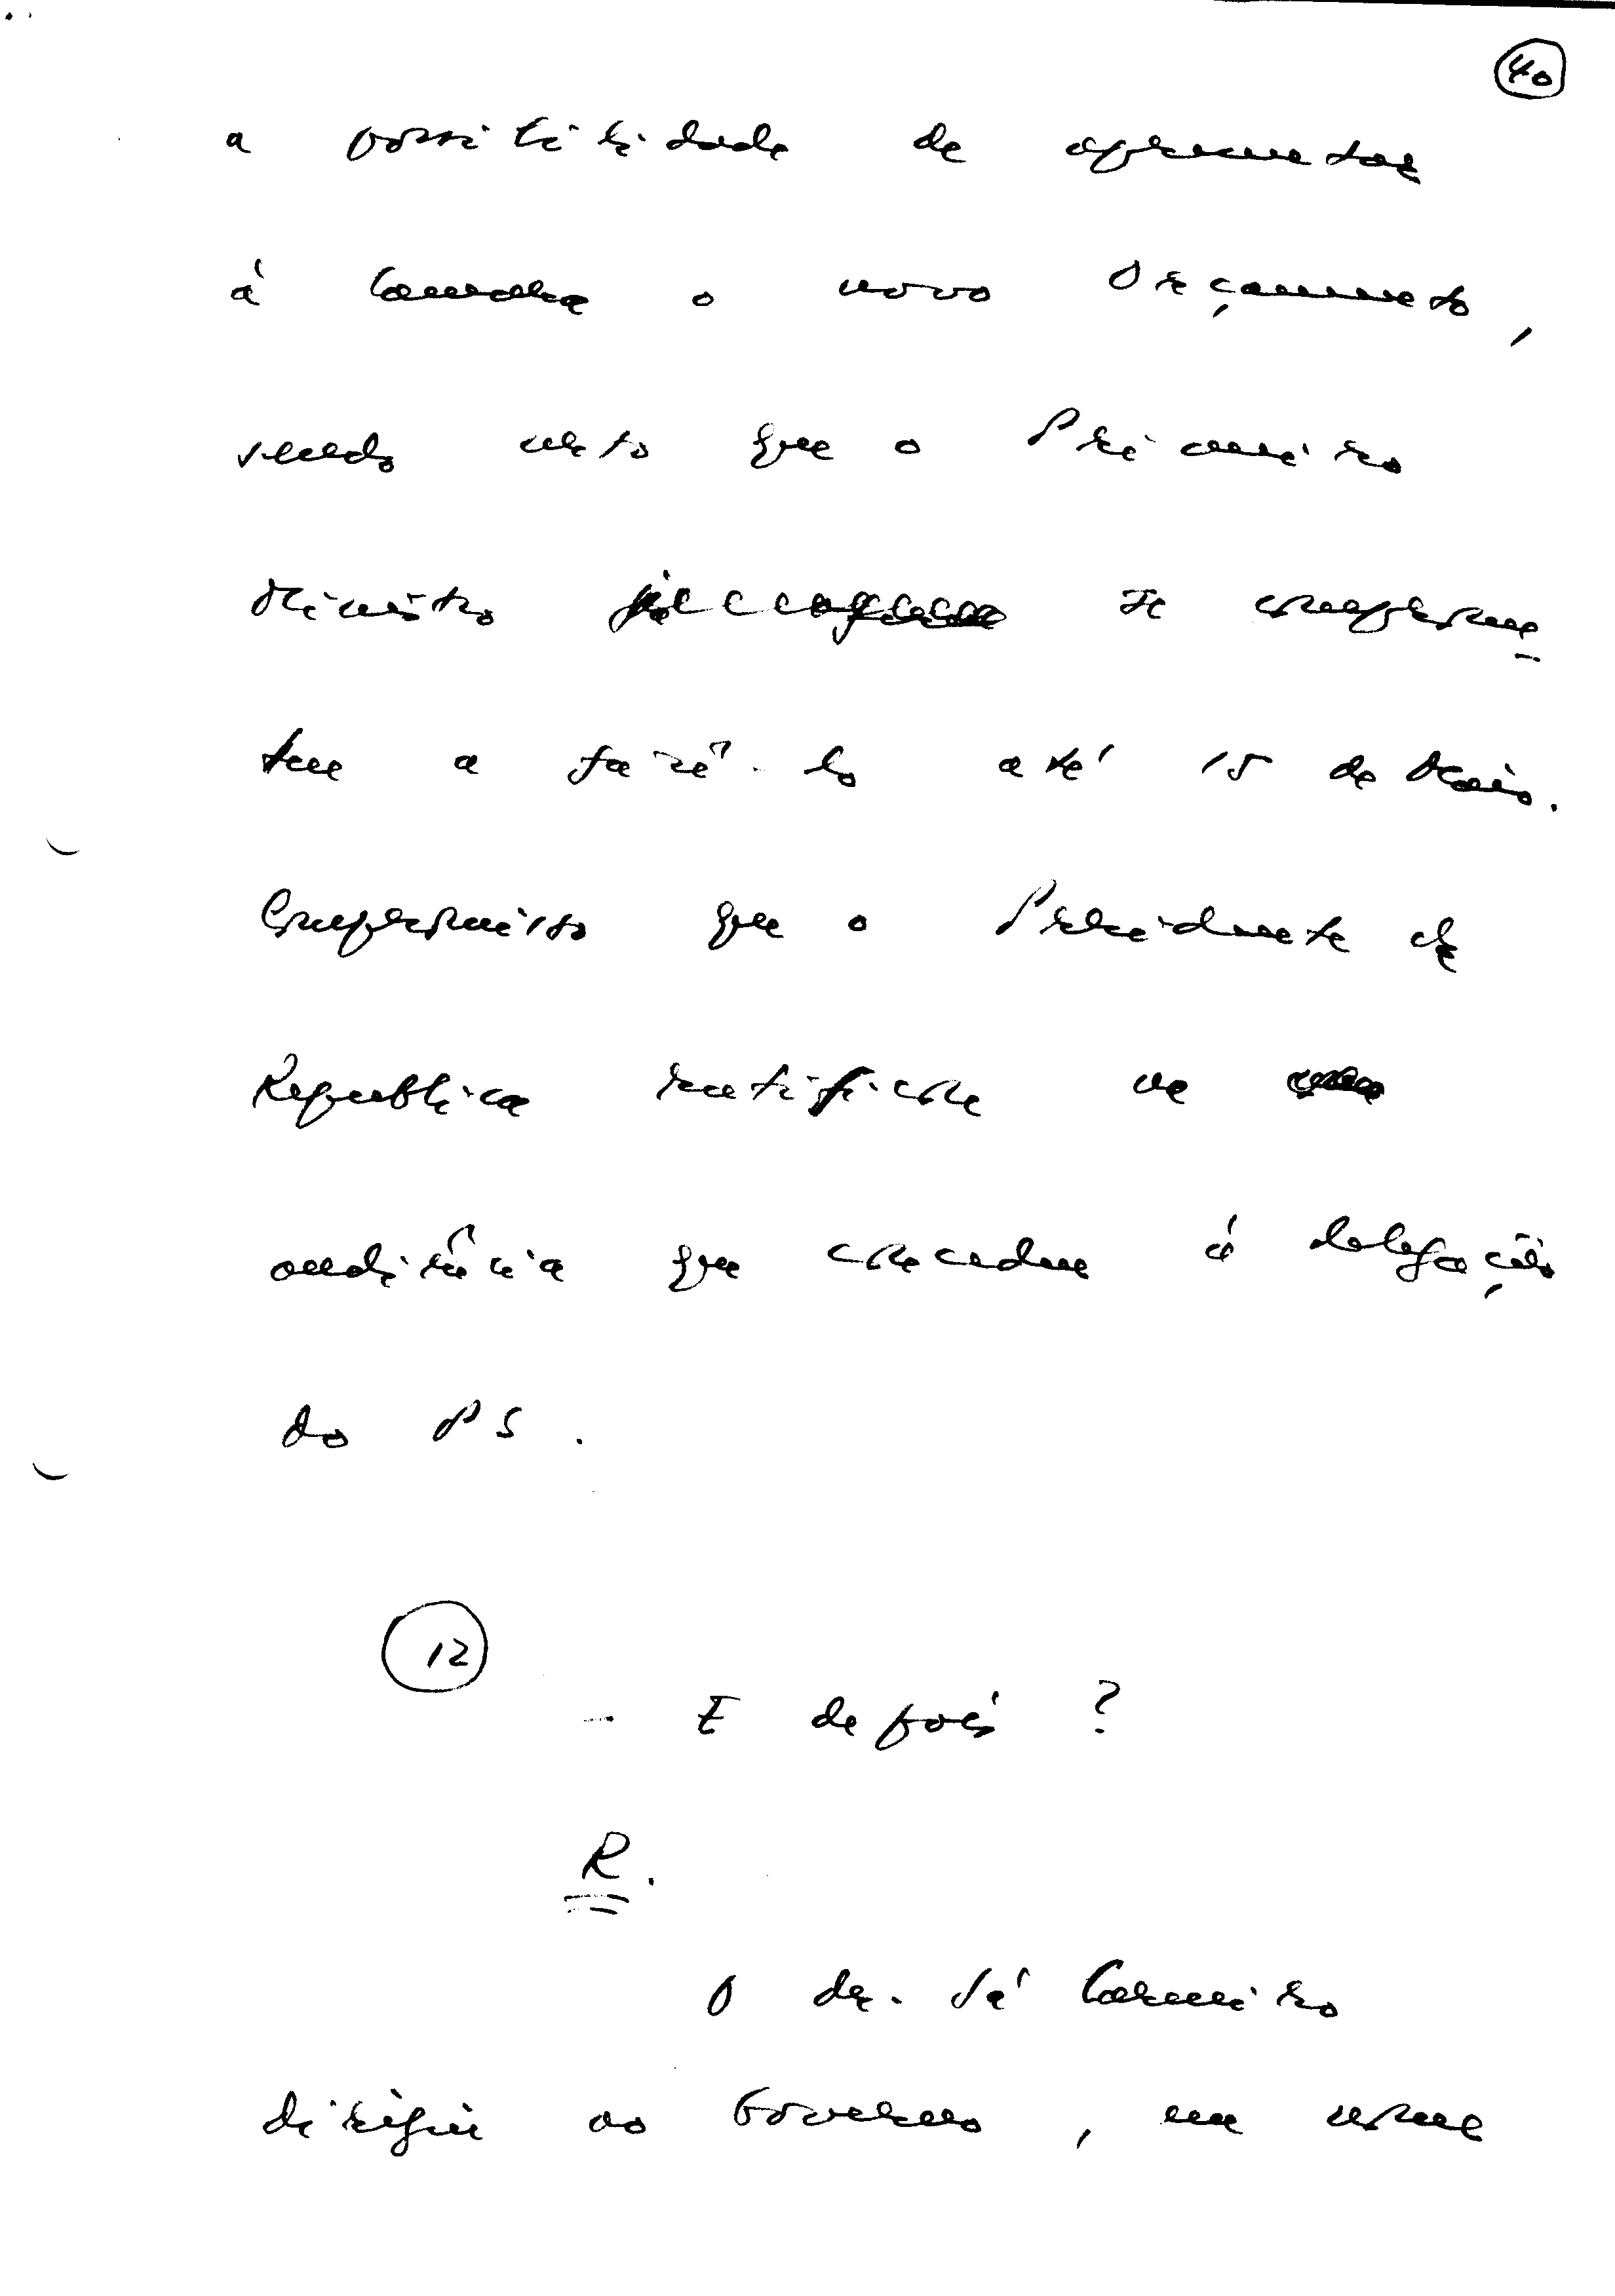 40
a possibilidade de apresentar
à Camara o novo Orçamento,
sendo certo que o Primeiro
Ministro se comprome
teu a fazê-lo até 15 de Maio.
Compromisso que o Presidente da
Republica ratificou na
audiência que concedeu à delegação
do PS.
12
- E depois?
R.
O dr. Sá Carneiro
dirigiu ao Governo, em nome